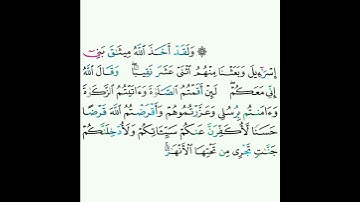 ۞ وَلَقَدْ أَخَذَ ٱللَّهُ مِيثَٰقَ بَنِىٓ
إِسْرَٰٓءِيلَ وَبَعَثْنَا مِنْهُمُ ٱثْنَىْ عَشَرَ نَقِيبًا ۖ وَقَالَ ٱللَّهُ
إِنِّى مَعَكُمْ ۖ لَئِنْ أَقَمْتُمُ ٱلصَّلَوٰةَ وَءَاتَيْتُمُ ٱلزَّكَوٰةَ
وَءَامَنتُم بِرُسُلِى وَعَزَّرْتُمُوهُمْ وَأَقْرَضْتُمُ ٱللَّهَ قَرْضًا
حَسَنًا لَّأُكَفِّرَنَّ عَنكُمْ سَيِّـَٔاتِكُمْ وَلَأُدْخِلَنَّكُمْ
جَنَّٰتٍ تَجْرِى مِن تَحْتِهَا ٱلْأَنْهَٰرُ ۚ